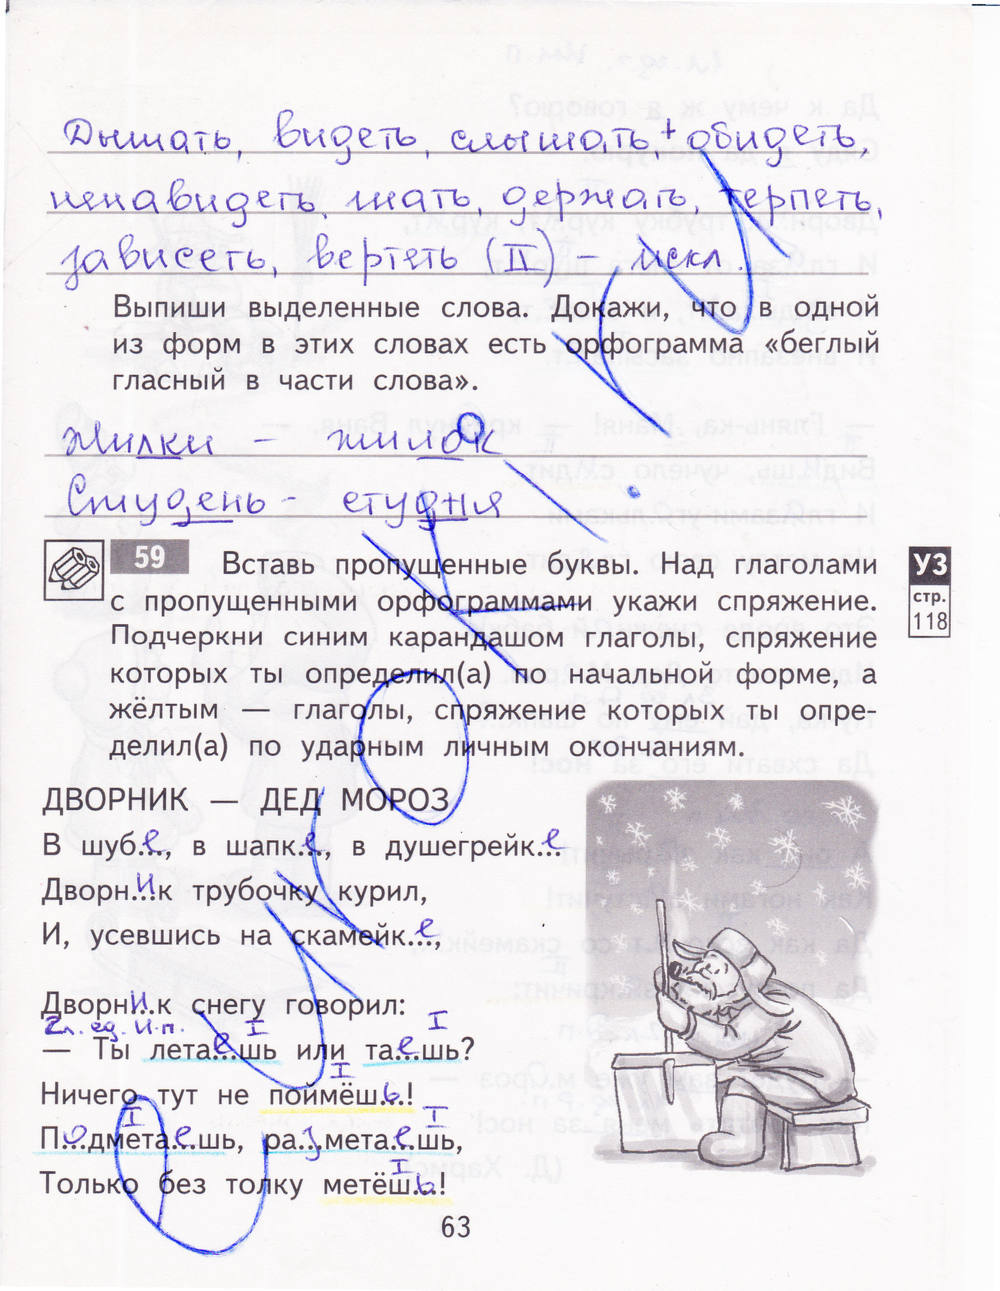 Дышать, видеть, слышать + обидеть,
ненавидеть, гнать, держать, терпеть,
зависеть, вертеть (II) - искл.
Выпиши выделенные слова. Докажи, что в одной
из форм в этих словах есть орфограмма «беглый
гласный в части слова».
Жилки - жилок
Студень - студня
59 Вставь пропущенные буквы. Над глаголами
с пропущенными орфограммами укажи спряжение.
Подчеркни синим карандашом глаголы, спряжение
которых ты определил(а) по начальной форме, а
жёлтым — глаголы, спряжение которых ты опре-
делил(а) по ударным личным окончаниям.
УЗ
стр.
118
ДВОРНИК — ДЕД МОРОЗ
В шуб.е., в шапк.е., в душегрейк.е.
Дворн.и.к трубочку курил,
И, усевшись на скамейк.е.,
Дворн.и.к снегу говорил:
2л. ед. И.п. I I
— Ты лета.е.шь или та.е.шь?
I
Ничего тут не поймёш.ь.!
I I
П.о.дмета.е.шь, ра.з.мета.е.шь,
I
Только без толку метёш.ь.!
63